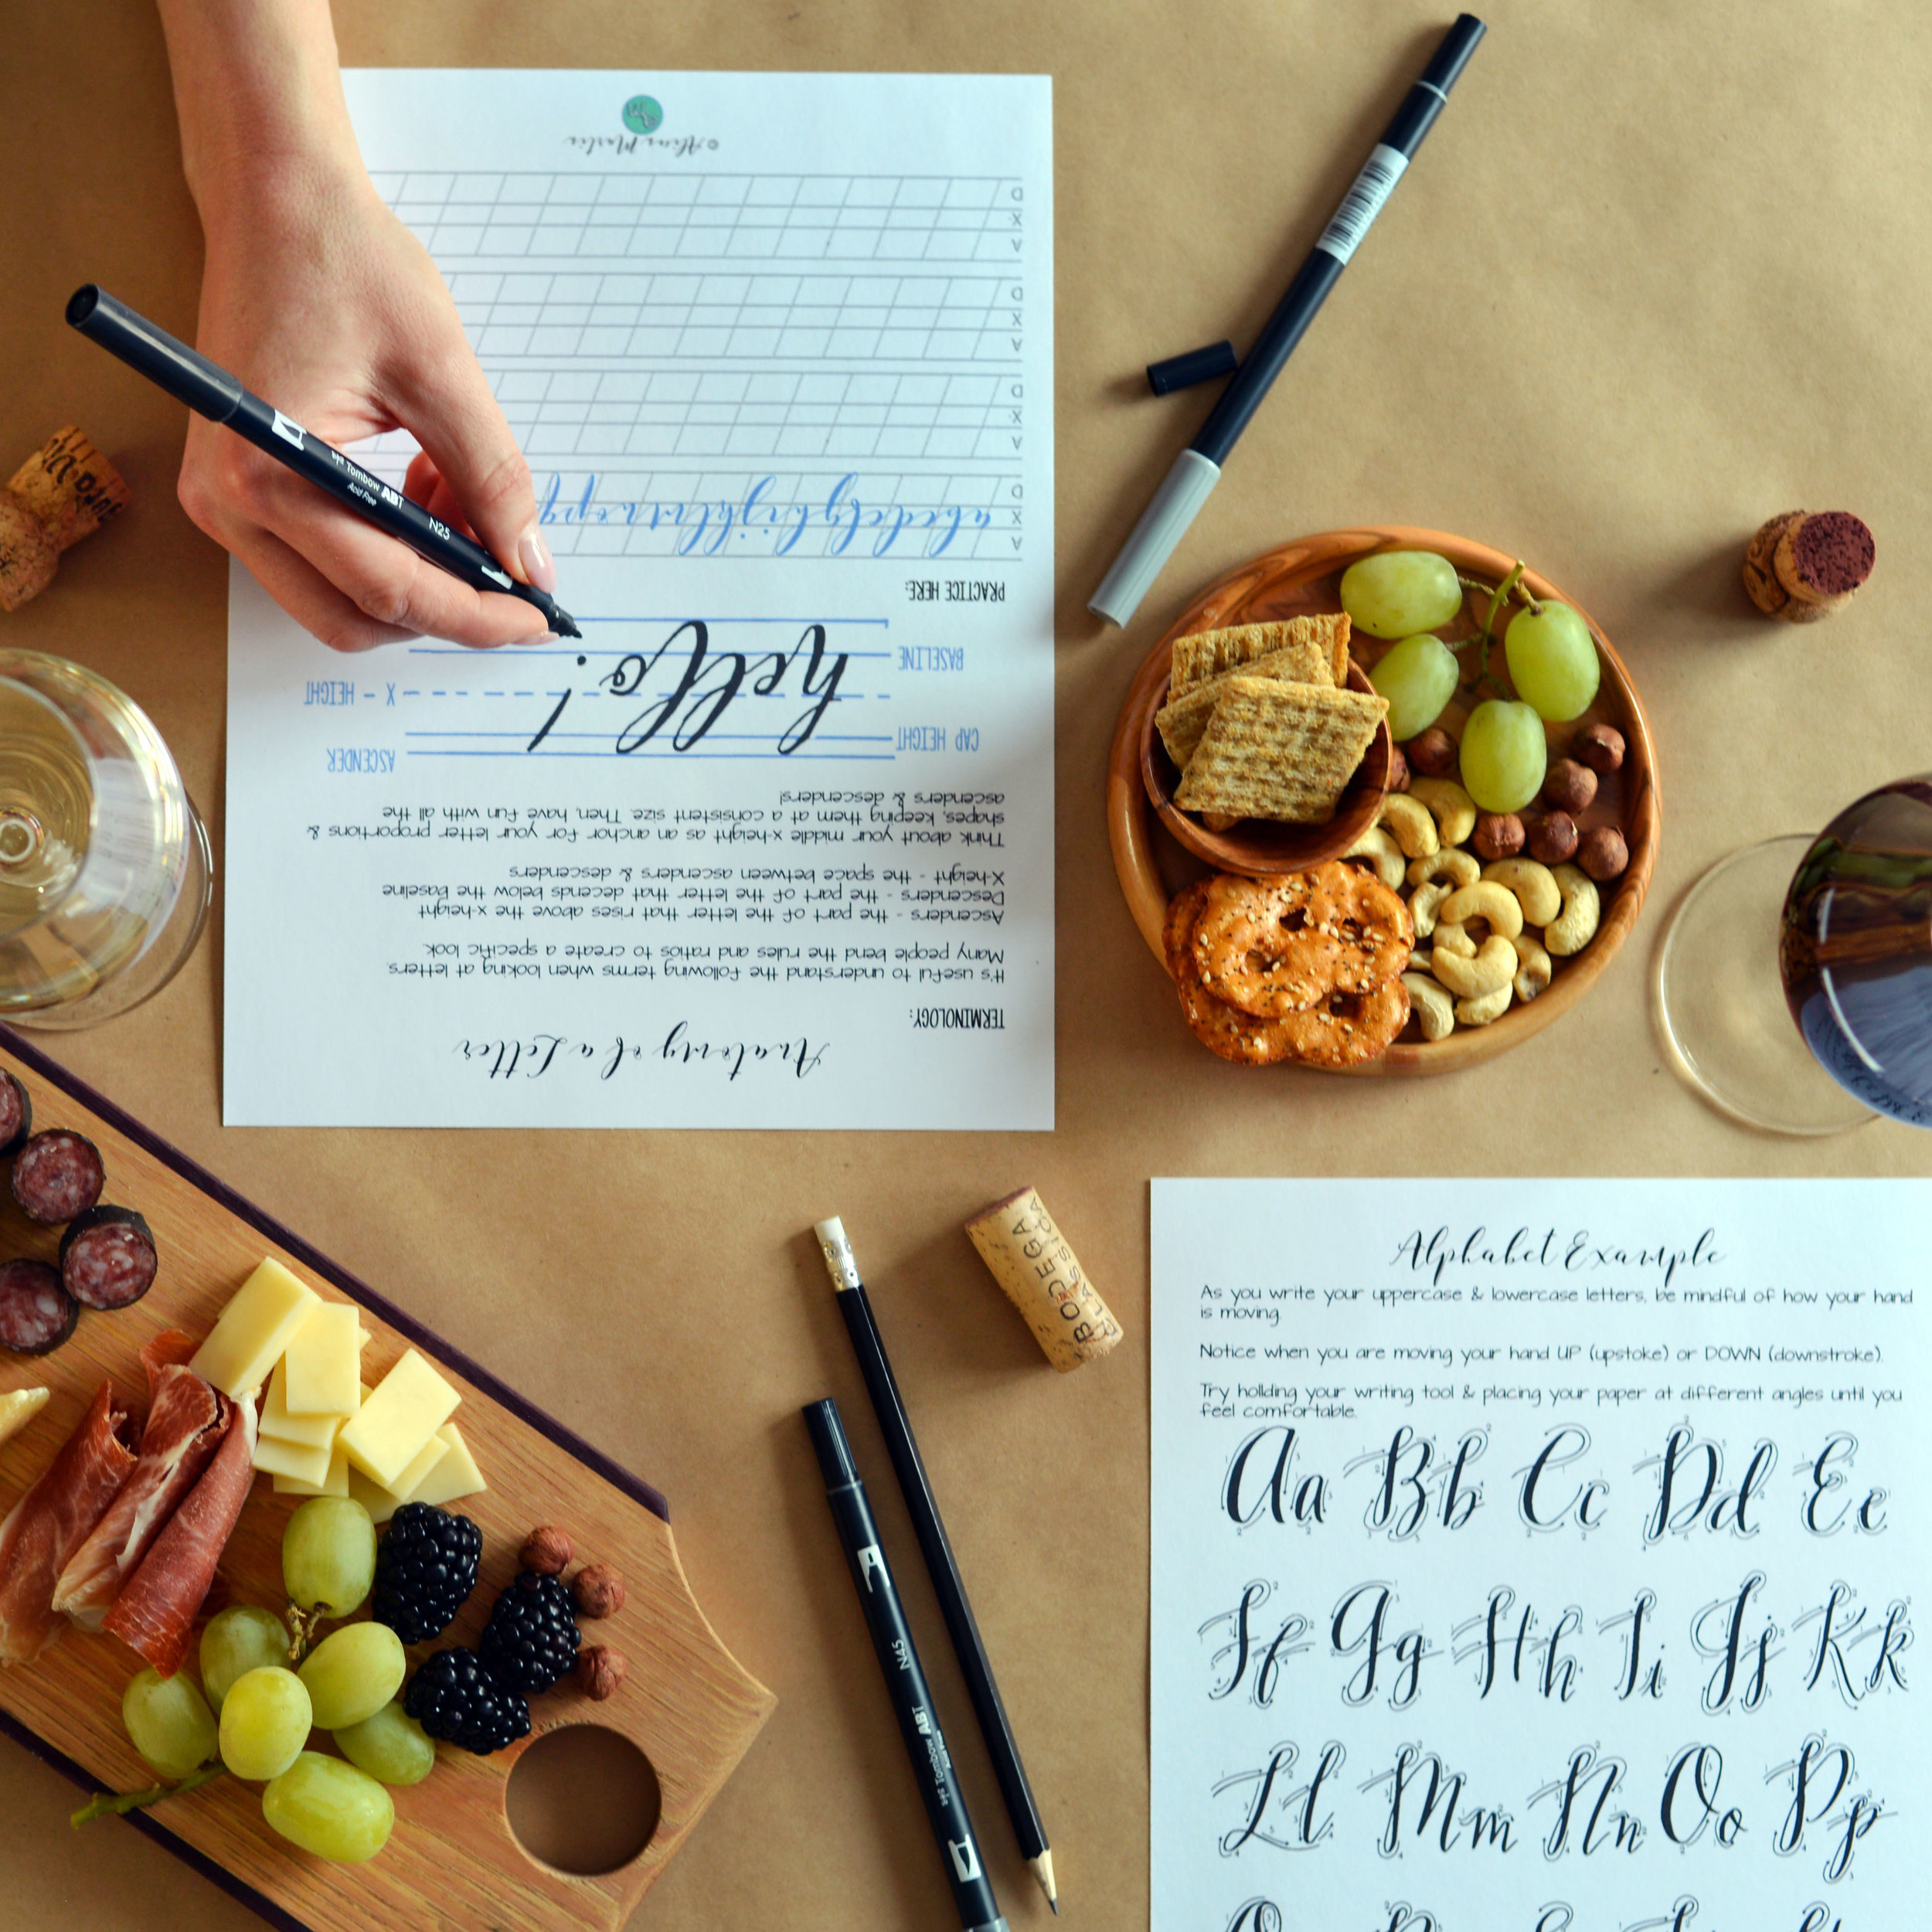 Anatomy of a Letter
TERMINOLOGY:
It's useful to understand the following terms when looking at letters.
Many people bend the rules and ratios to create a specific look.
Ascenders - the part of the letter that rises above the x-height
Descenders - the part of the letter that decends below the baseline
X-height - the space between ascenders & descenders
Think about your middle x-height as an anchor for your letter proportions &
shapes, keeping them at a consistent size. Then, have fun with all the
ascenders & descenders!
ASCENDER
CAP HEIGHT
hello!
X - HEIGHT
BASELINE
PRACTICE HERE:
A
X
D
abcdefghijklmnopq
A
X
D
A
X
D
A
X
D
Tombow ABT
Acid Free
N25
BODEGA
CLASSICA
N45
Tombow ABT
Alphabet Example
As you write your uppercase & lowercase letters, be mindful of how your hand
is moving.
Notice when you are moving your hand UP (upstoke) or DOWN (downstroke).
Try hollding your writing tool & placing your paper at different angles until you
feel comfortable.
Aa Bb Cc Dd Ee
Ff Gg Hh Ii Jj Kk
Ll Mm Nn Oo Pp